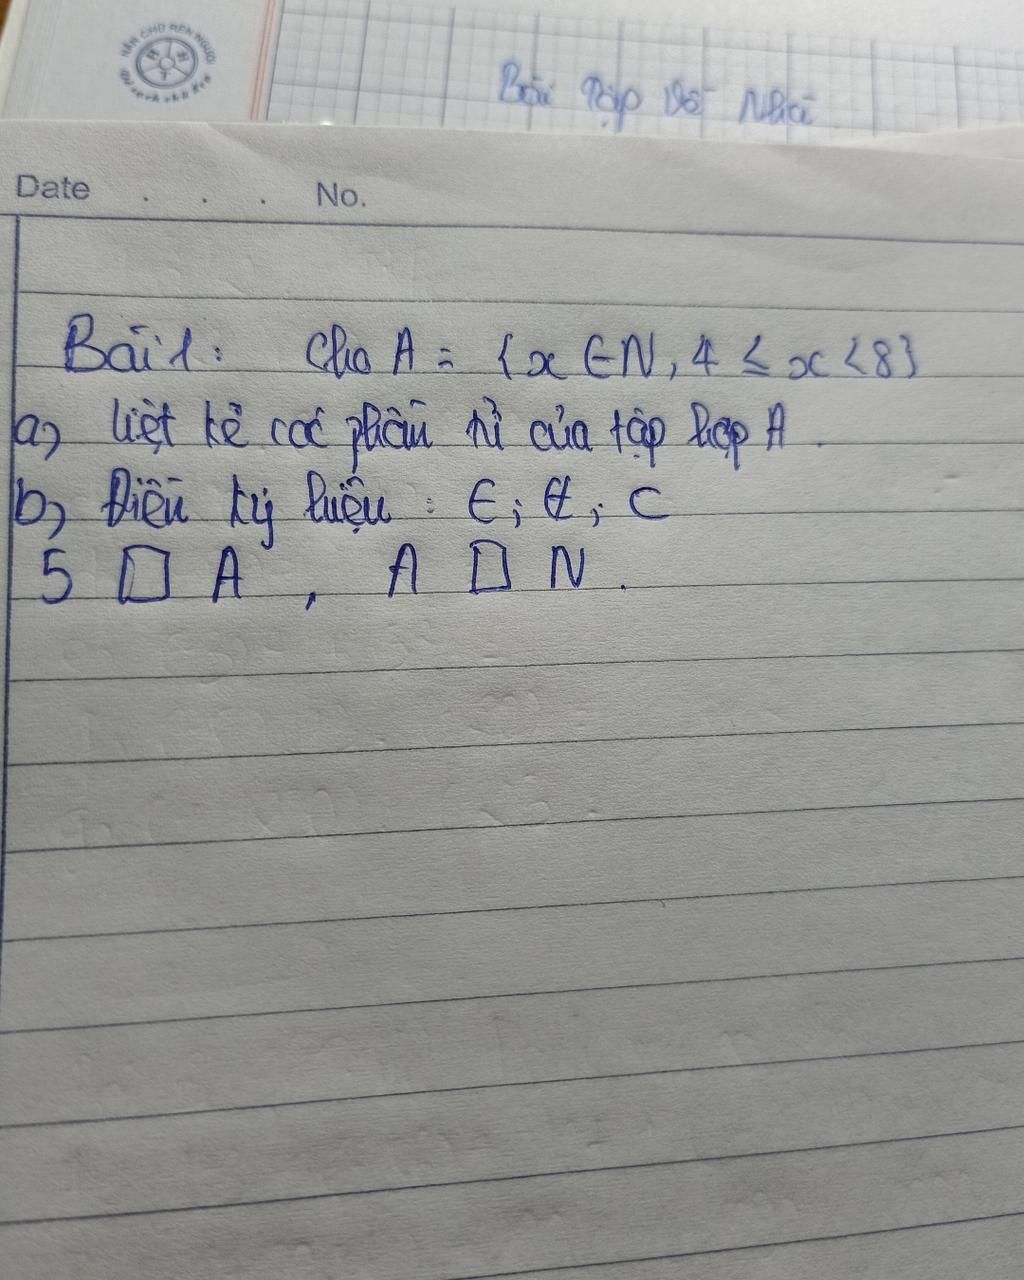 Bài Tập Về Nhà
Date . . . No.
Bài 1: Cho A = {x ∈ N, 4 ≤ x < 8}
a) Liệt kê các phần tử của tập hợp A.
b) Điền ký hiệu : ∈; ∉; ⊂
5 □ A , A □ N.